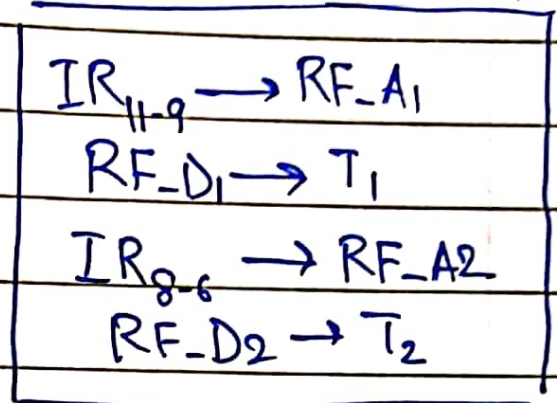 IR₁₁₋₉ → RF_A₁
RF_D₁ → T₁
IR₈₋₆ → RF_A2
RF_D2 → T₂